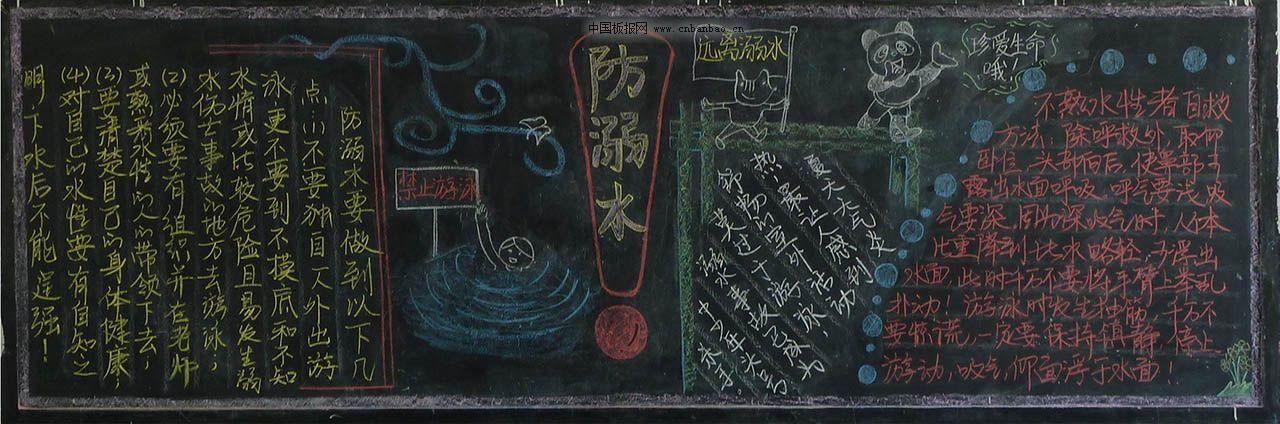 中国板报网 www.cnbanbao.cn
防溺水要做到以下几
点:(1)不要独自一人外出游
泳,更不要到不摸底和不知
水情或比较危险且易发生溺
水伤亡事故的地方去游泳;
(2)必须要有组织并在老师
或熟悉水性的人的带领下去;
(3)要清楚自己的身体健康;
(4)对自己的水性要有自知之
明,下水后不能逞强!
禁止游泳
防溺水
远离溺水
珍爱生命
哦!
夏天天气炎
热,最让人感到
舒畅的室外活动
莫过于游泳
溺水事故已成为
中小学生头号
杀手。
不熟水性者自救
方法:除呼救外,取仰
卧位,头部向后,使鼻部可
露出水面呼吸。呼气要浅,吸
气要深。因为深吸气时,人体
比重降到比水略轻,可浮出
水面,此时千万不要将手臂上举乱
扑动!游泳时发生抽筋,千万不
要惊慌,一定要保持镇静,停止
游动,吸气,仰面浮于水面!